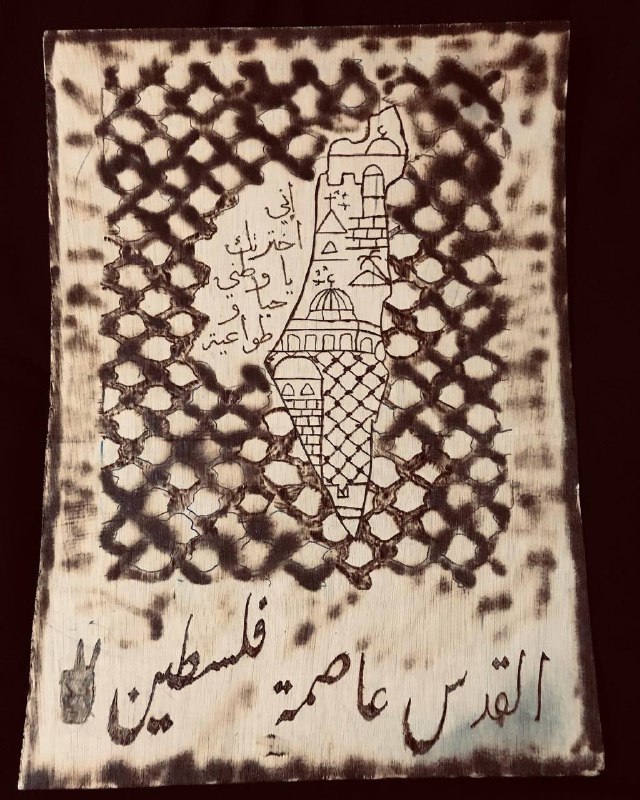 إني
اخترتك
يا وطني
حبا و
طواعية
القدس عاصمة فلسطين